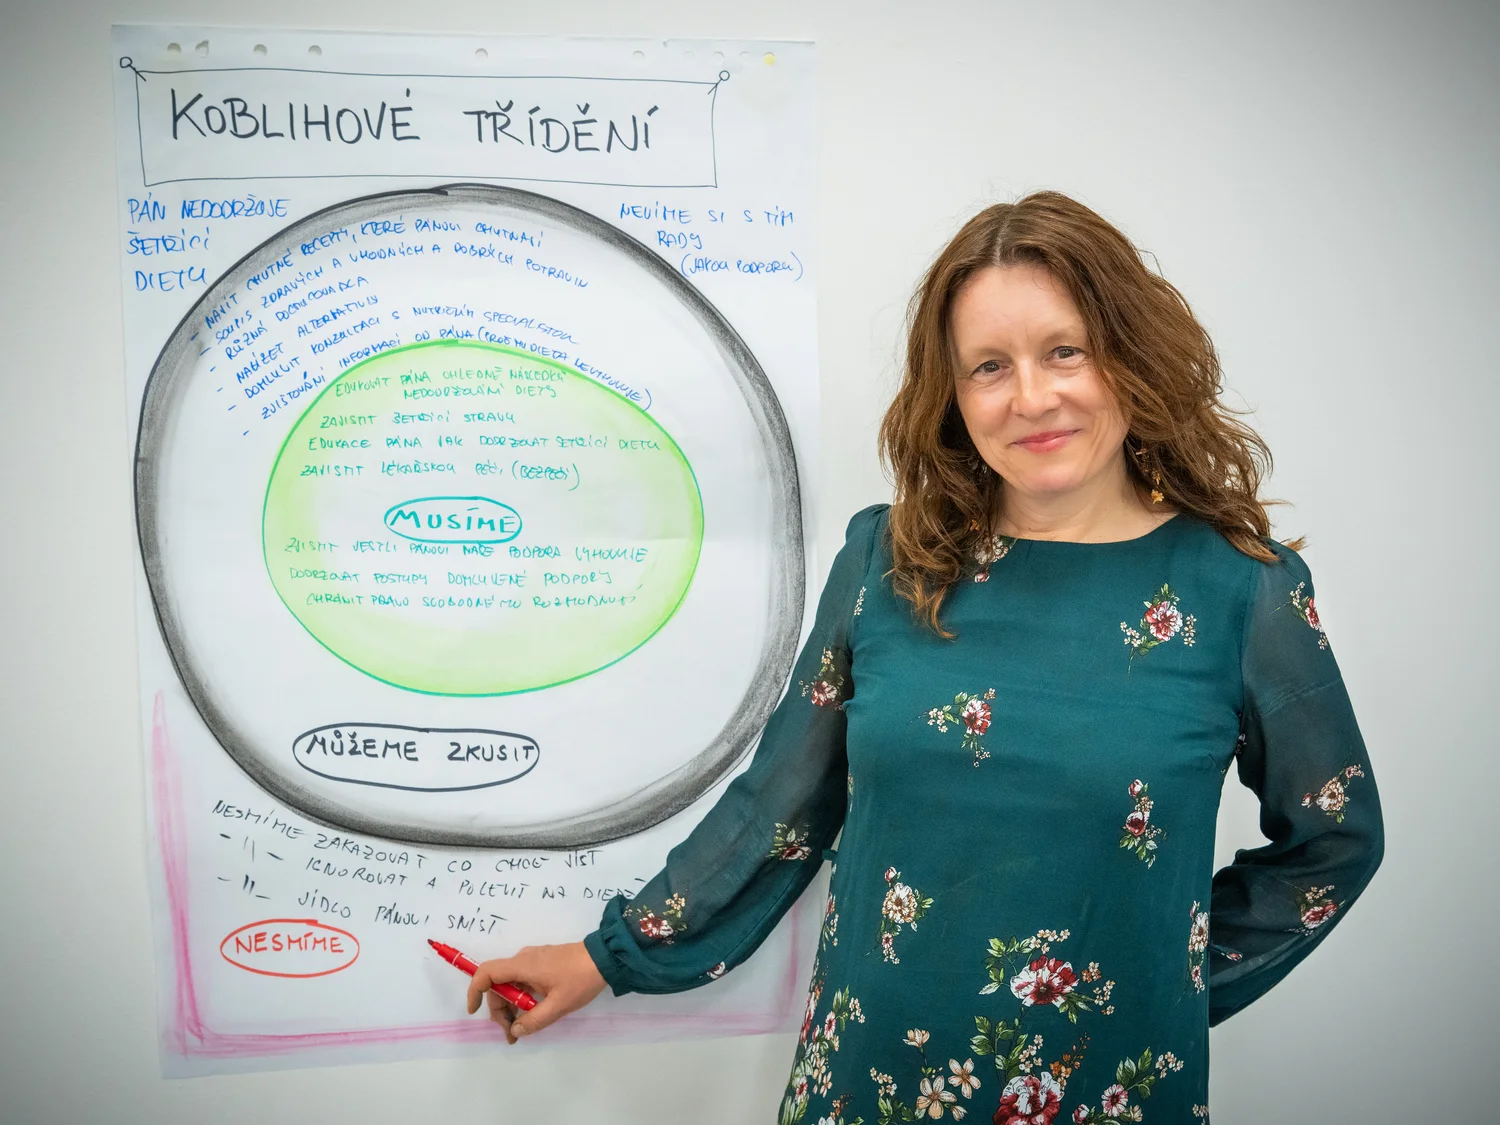 KOBLIHOVÉ TŘÍDĚNÍ
PÁN NEDODRŽUJE
ŠETŘÍCÍ
DIETU
NEVÍME SI S TÍM
RADY
(JAKOU PODPORU)
- NAJÍT CHUTNÉ RECEPTY, KTERÉ PÁNOVI CHUTNAJÍ
- SOUPIS ZDRAVÝCH A VHODNÝCH A DOBRÝCH POTRAVIN
RŮZNÁ DOCHUCOVADLA
- NABÍZET ALTERNATIVY
- DOMLUVIT KONZULTACI S NUTRIČNÍM SPECIALISTOU
- ZJIŠŤOVÁNÍ INFORMACÍ OD PÁNA (PROČ MU DIETA NEVYHOVUJE)
EDUKOVAT PÁNA OHLEDNĚ NÁSLEDKŮ
NEDODRŽOVÁNÍ DIETY
ZAJISTIT ŠETŘÍCÍ STRAVU
EDUKACE PÁNA JAK DODRŽOVAT ŠETŘÍCÍ DIETU
ZAJISTIT LÉKAŘSKOU PÉČI (BEZPEČÍ)
MUSÍME
ZJISTIT JESTLI PÁNOVI NAŠE PODPORA VYHOVUJE
DODRŽOVAT POSTUPY DOMLUVENÉ PODPORY
CHRÁNIT PRÁVO SVOBODNÉHO ROZHODNUTÍ
MŮŽEME ZKUSIT
NESMÍME ZAKAZOVAT CO CHCE JÍST
- 11 - IGNOROVAT A POLEVIT NA
- 11 - JÍDLO PÁNOVI SNÍST
NESMÍME